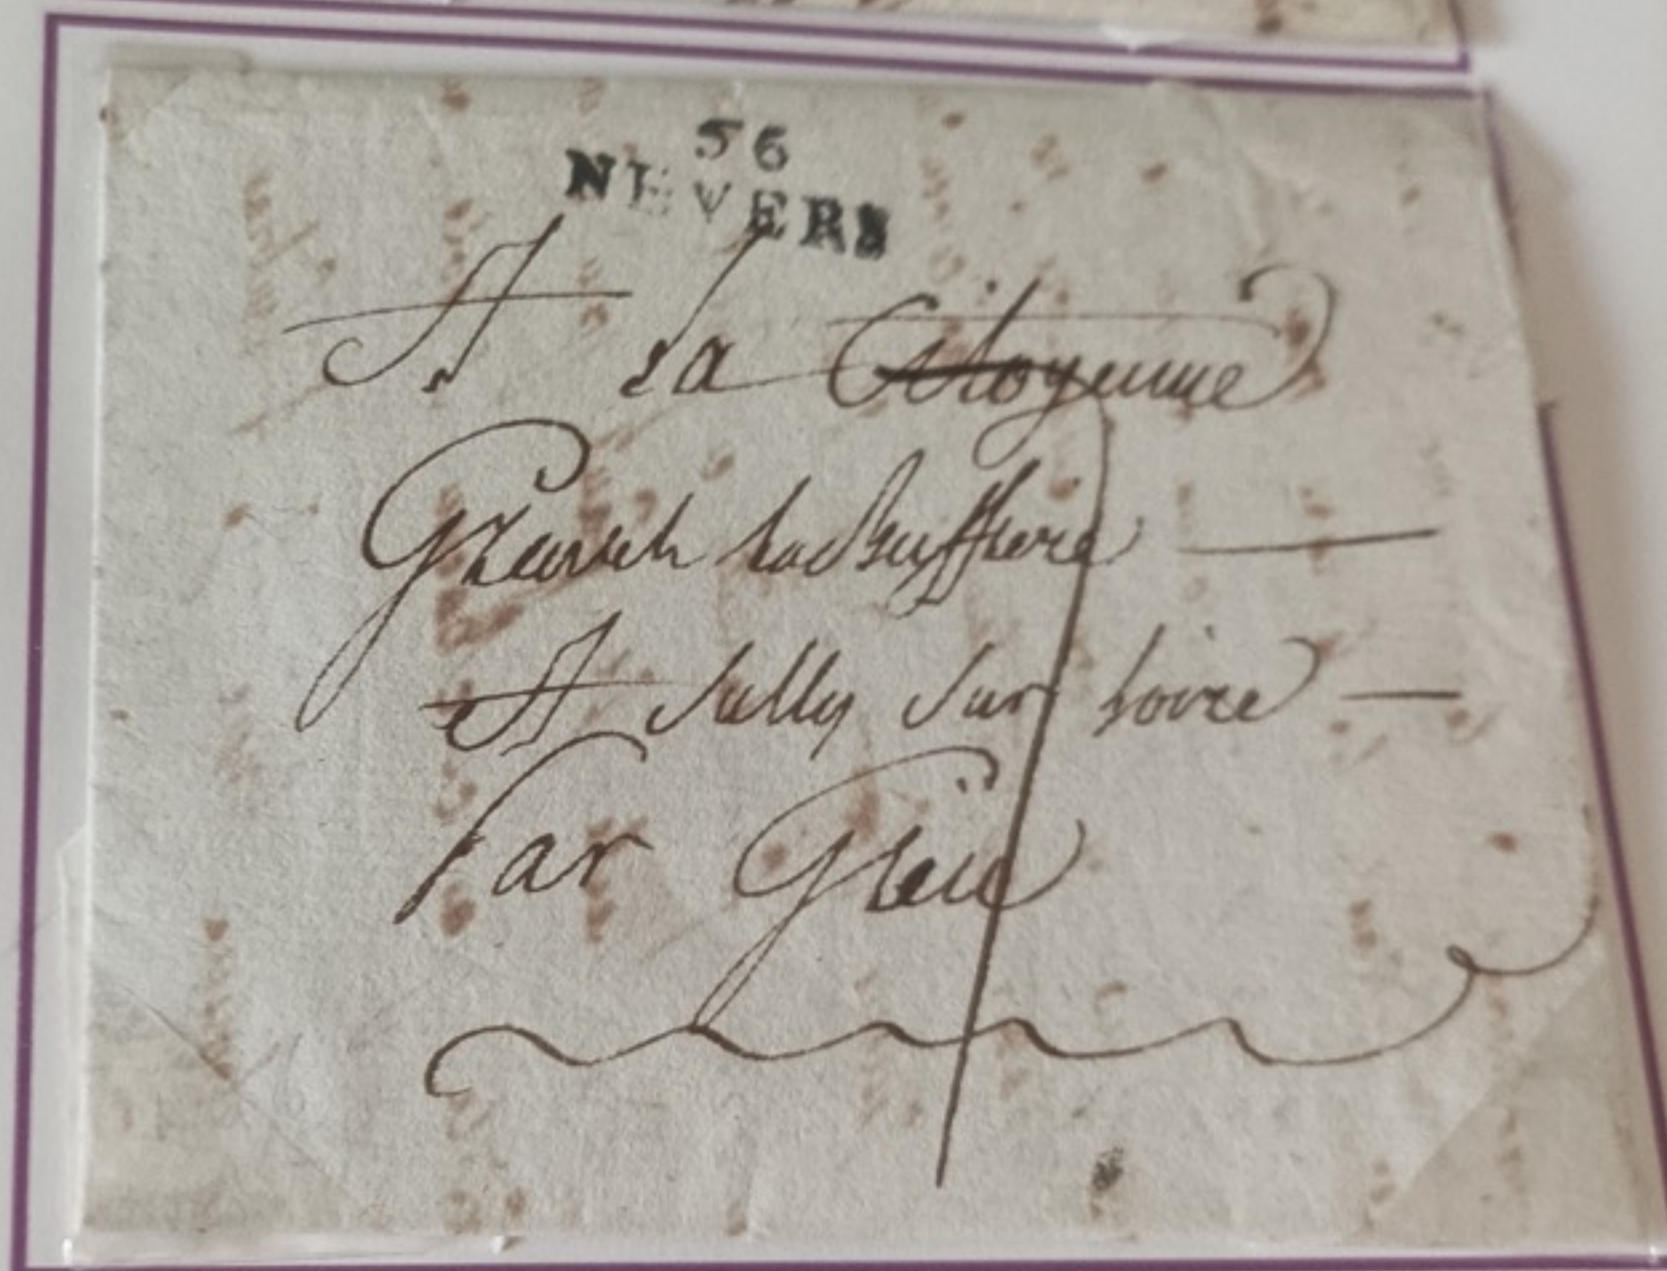 56
NEVERS
A La Citoyenne
LaBuffiere
A Sully Sur Loire
Par Gien
7